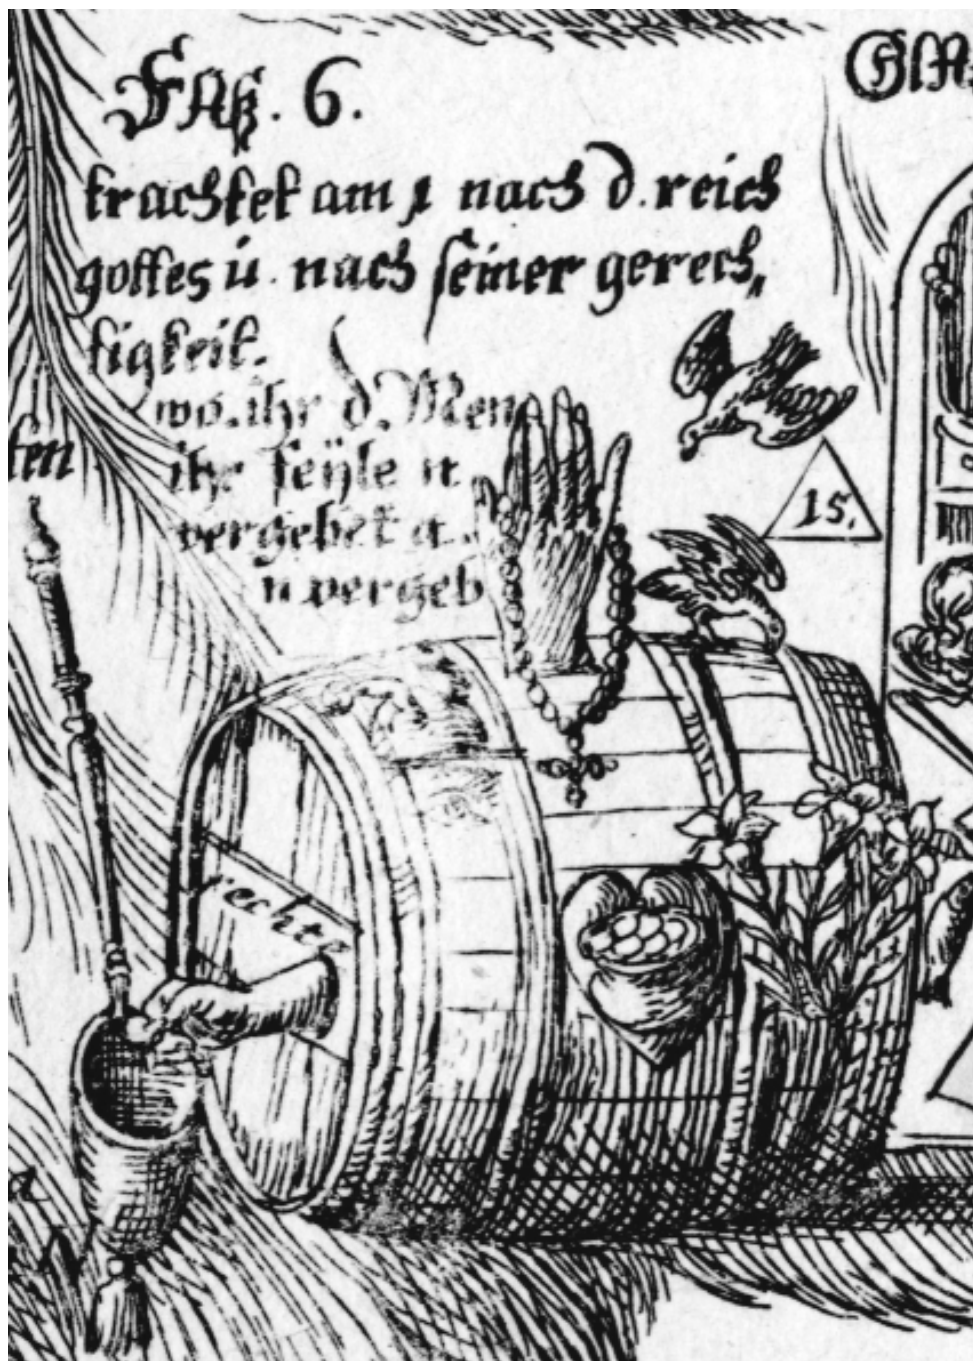 Faß. 6.
trachtet am 1 nach d. reich
gottes u. nach seiner gerech„
tigkeit.
wo. ihr d. Men
ihr feÿle u
vergebet a.
u vergeb
ten
15.
rechte